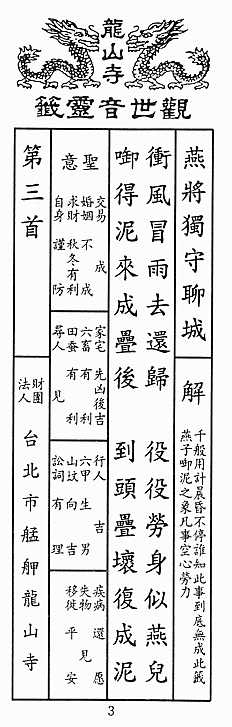 龍山寺
觀世音靈籤
燕將獨守聊城
解
千般用計晨昏不停誰知此事到底無成此籤
燕子啣泥之象凡事空心勞力
衝風冒雨去還歸 役役勞身似燕兒
啣得泥來成疊後 到頭疊壞復成泥
聖意
交易 成
婚姻 不成
求財 秋冬有利
自身 謹防
家宅 先凶後吉
六畜 有利
田蚕 有利
尋人 見
行人 吉
六甲 生男
山墳 向吉
訟詞 有理
疾病 還愿
失物 見
移徙 平安
第三首
財團
法人
台北市艋舺龍山寺
3